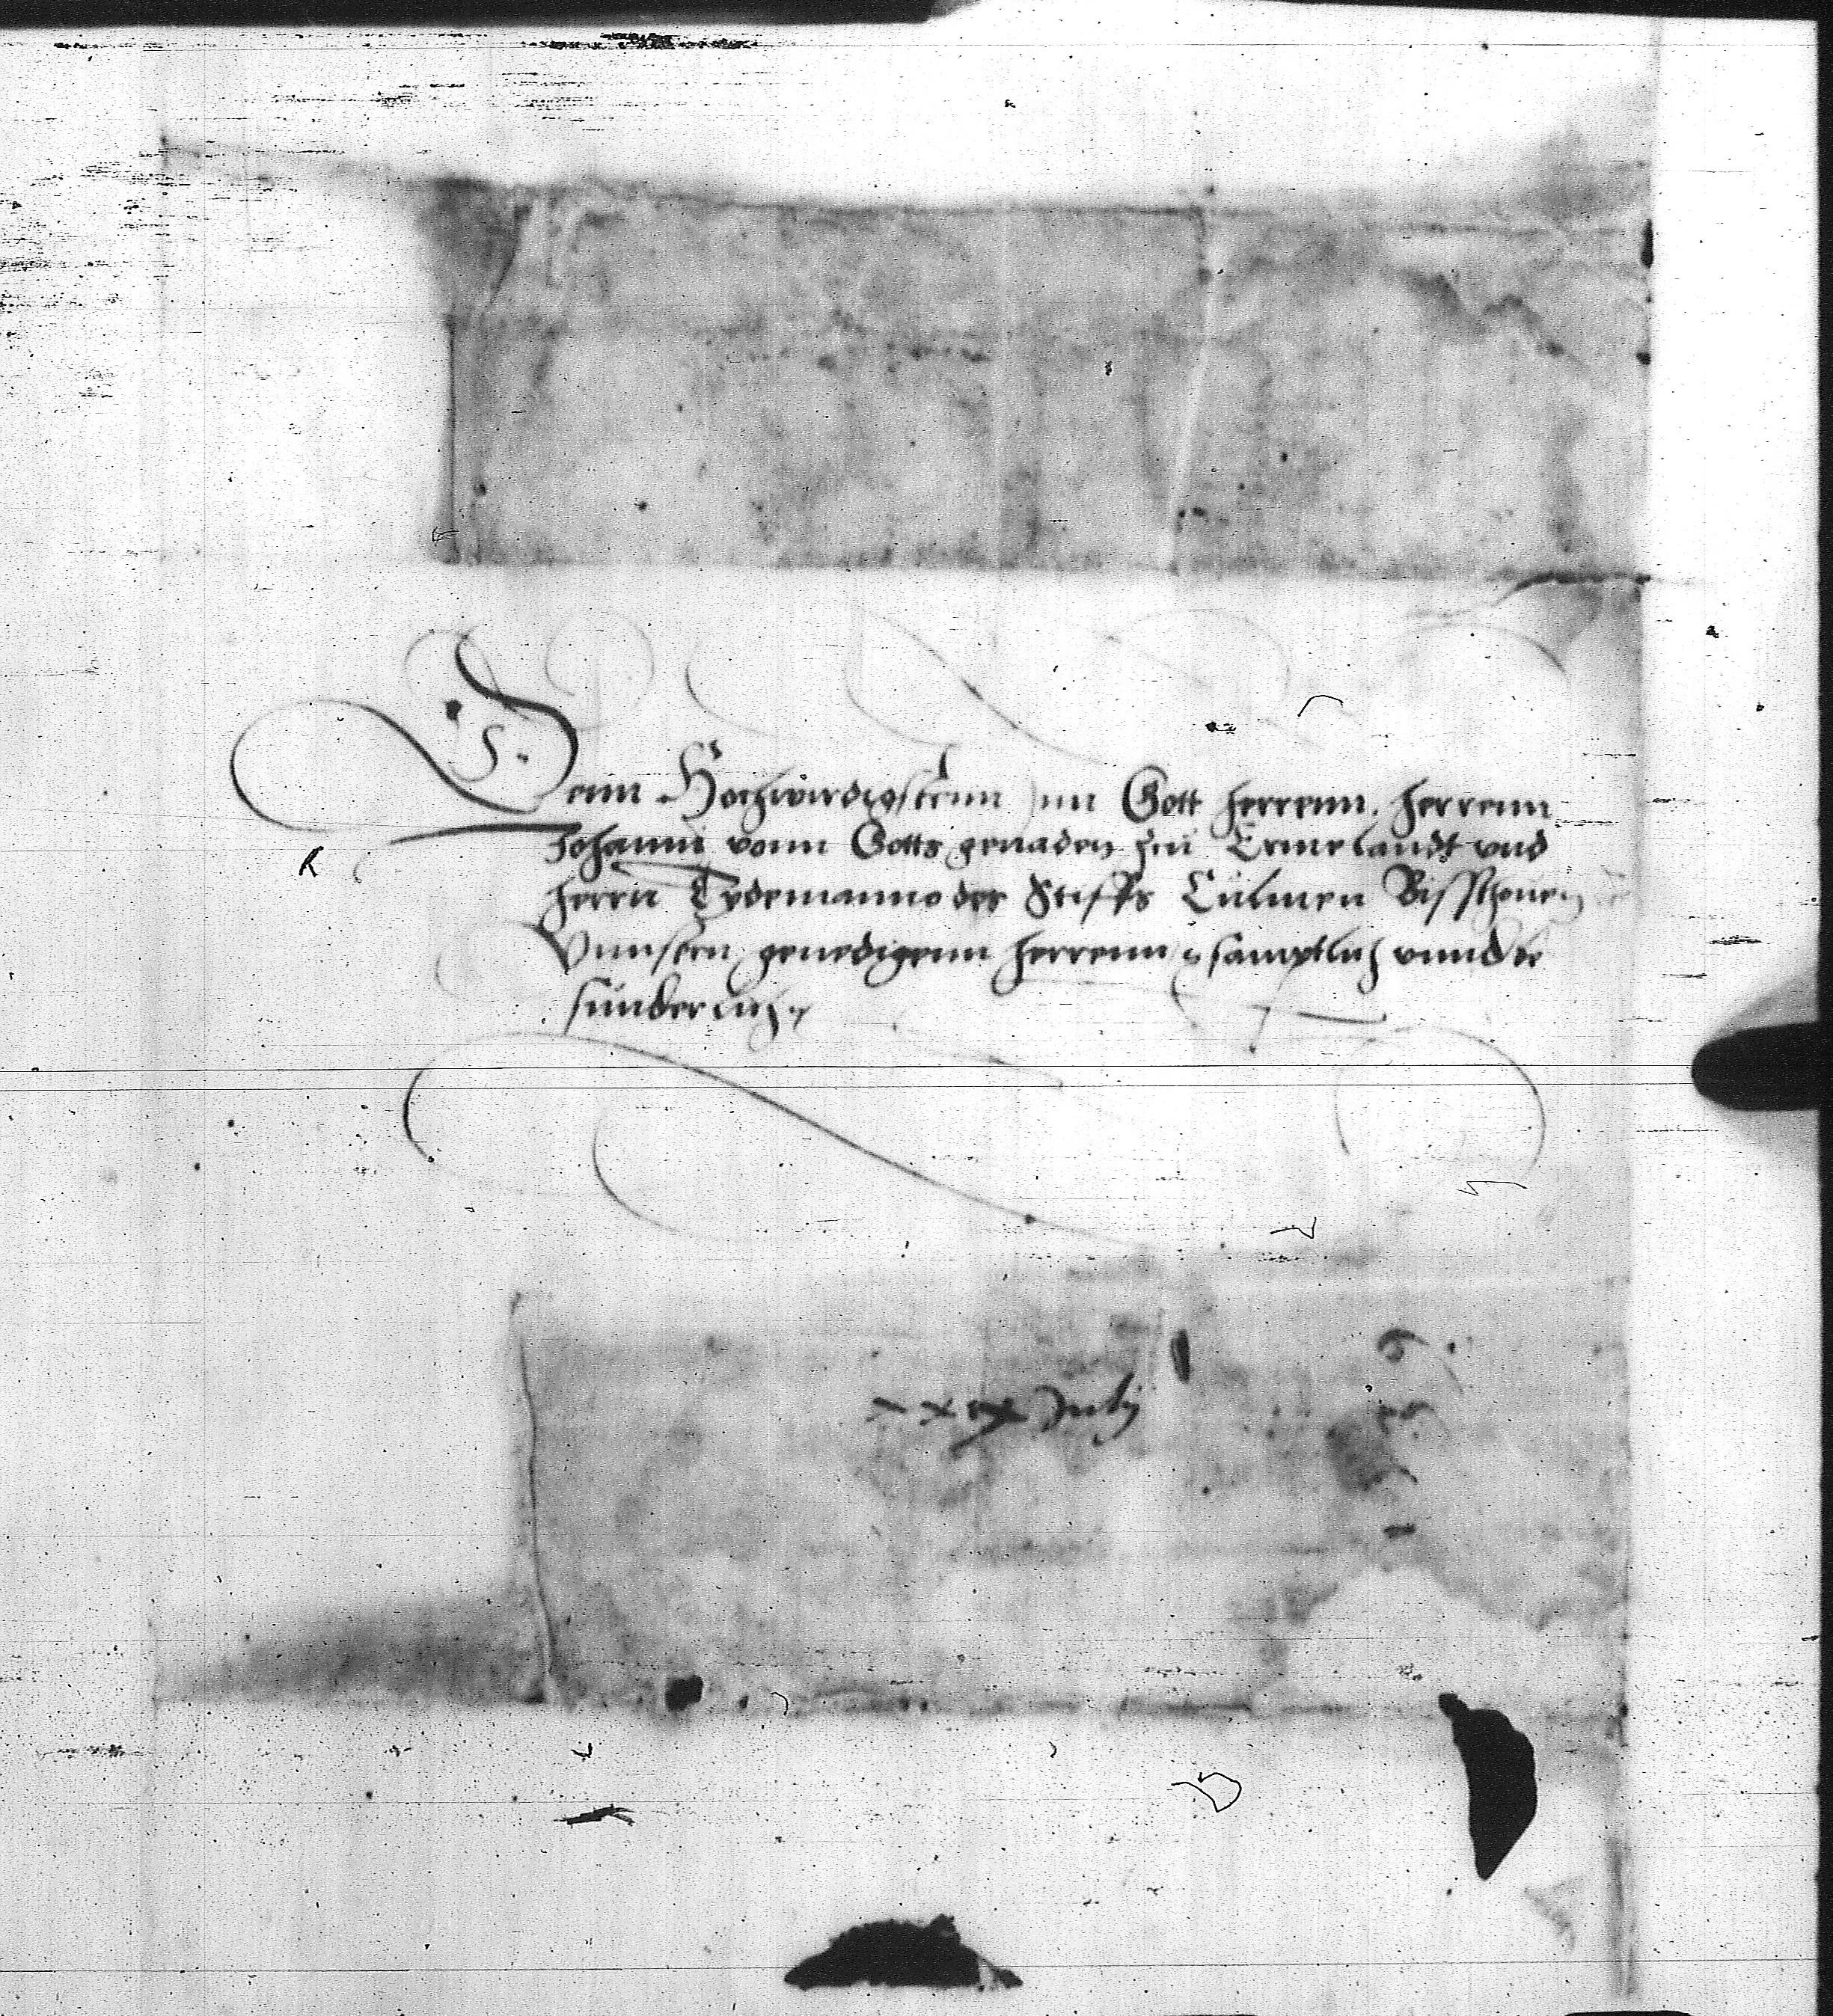 Denn Hochwirdigstenn jnn Gott herrenn, herrenn
Johanni vonn Gotts genaden zuu Ermelandt vnd
herrn Tydemanno des Stiffts Culmen Bisschouen
Vnnsern genedigenn herrenn samptlich vnnd be
sunderlich
xxix July